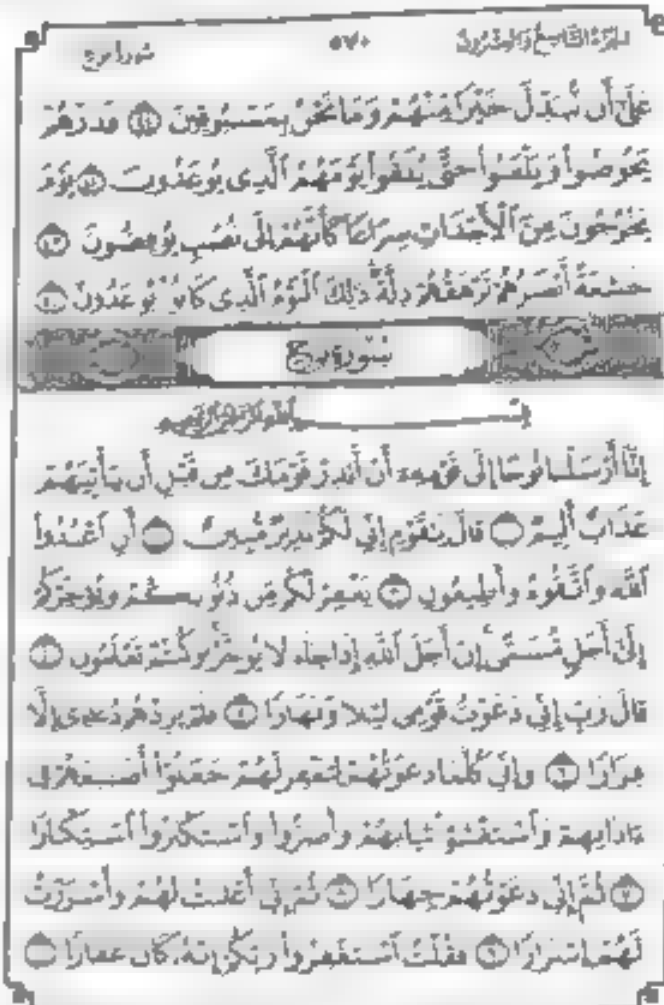 سورة نوح ٥٧٠ الجزء التاسع والعشرون
عَلَىٰ أَن نُّبَدِّلَ خَيْرًا مِّنْهُمْ وَمَا نَحْنُ بِمَسْبُوقِينَ ٤١ فَذَرْهُمْ
يَخُوضُوا۟ وَيَلْعَبُوا۟ حَتَّىٰ يُلَـٰقُوا۟ يَوْمَهُمُ ٱلَّذِى يُوعَدُونَ ٤٢ يَوْمَ
يَخْرُجُونَ مِنَ ٱلْأَجْدَاثِ سِرَاعًا كَأَنَّهُمْ إِلَىٰ نُصُبٍ يُوفِضُونَ ٤٣
خَـٰشِعَةً أَبْصَـٰرُهُمْ تَرْهَقُهُمْ ذِلَّةٌ ذَٰلِكَ ٱلْيَوْمُ ٱلَّذِى كَانُوا۟ يُوعَدُونَ ٤٤
سورة نوح
بِسْمِ ٱللَّهِ ٱلرَّحْمَـٰنِ ٱلرَّحِيمِ
إِنَّآ أَرْسَلْنَا نُوحًا إِلَىٰ قَوْمِهِۦٓ أَنْ أَنذِرْ قَوْمَكَ مِن قَبْلِ أَن يَأْتِيَهُمْ
عَذَابٌ أَلِيمٌ ١ قَالَ يَـٰقَوْمِ إِنِّى لَكُمْ نَذِيرٌ مُّبِينٌ ٢ أَنِ ٱعْبُدُوا۟
ٱللَّهَ وَٱتَّقُوهُ وَأَطِيعُونِ ٣ يَغْفِرْ لَكُم مِّن ذُنُوبِكُمْ وَيُؤَخِّرْكُمْ
إِلَىٰٓ أَجَلٍ مُّسَمًّى إِنَّ أَجَلَ ٱللَّهِ إِذَا جَآءَ لَا يُؤَخَّرُ لَوْ كُنتُمْ تَعْلَمُونَ ٤
قَالَ رَبِّ إِنِّى دَعَوْتُ قَوْمِى لَيْلًا وَنَهَارًا ٥ فَلَمْ يَزِدْهُمْ دُعَآءِىٓ إِلَّا
فِرَارًا ٦ وَإِنِّى كُلَّمَا دَعَوْتُهُمْ لِتَغْفِرَ لَهُمْ جَعَلُوٓا۟ أَصَـٰبِعَهُمْ فِىٓ
ءَاذَانِهِمْ وَٱسْتَغْشَوْا۟ ثِيَابَهُمْ وَأَصَرُّوا۟ وَٱسْتَكْبَرُوا۟ ٱسْتِكْبَارًا
٧ ثُمَّ إِنِّى دَعَوْتُهُمْ جِهَارًا ٨ ثُمَّ إِنِّىٓ أَعْلَنتُ لَهُمْ وَأَسْرَرْتُ
لَهُمْ إِسْرَارًا ٩ فَقُلْتُ ٱسْتَغْفِرُوا۟ رَبَّكُمْ إِنَّهُۥ كَانَ غَفَّارًا ١٠